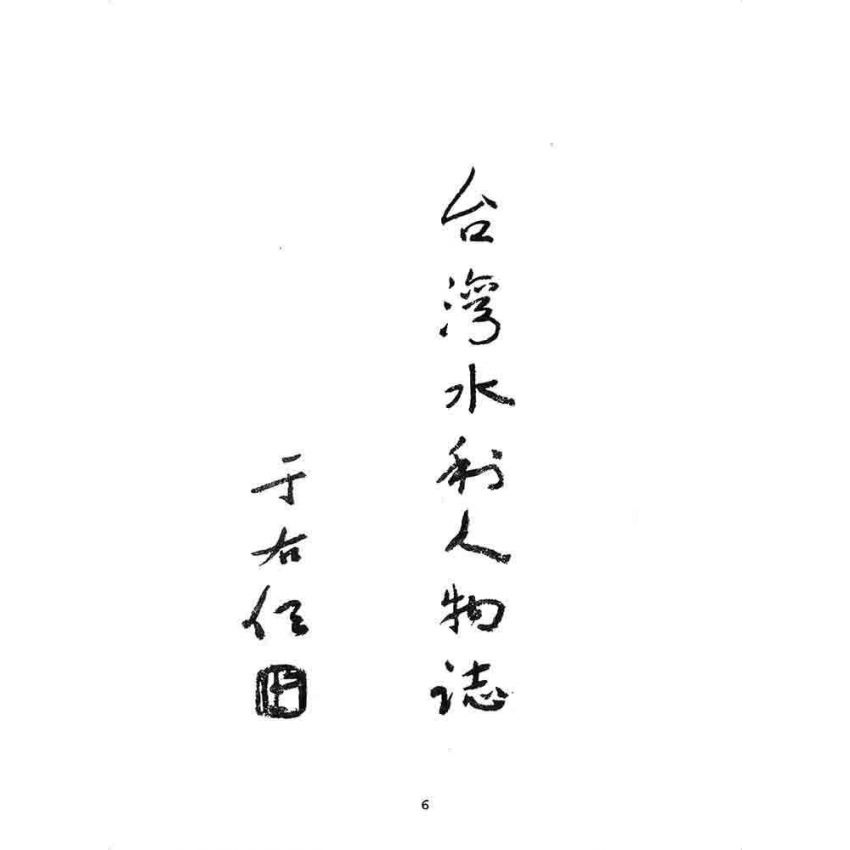 台灣水利人物誌
于右任
6